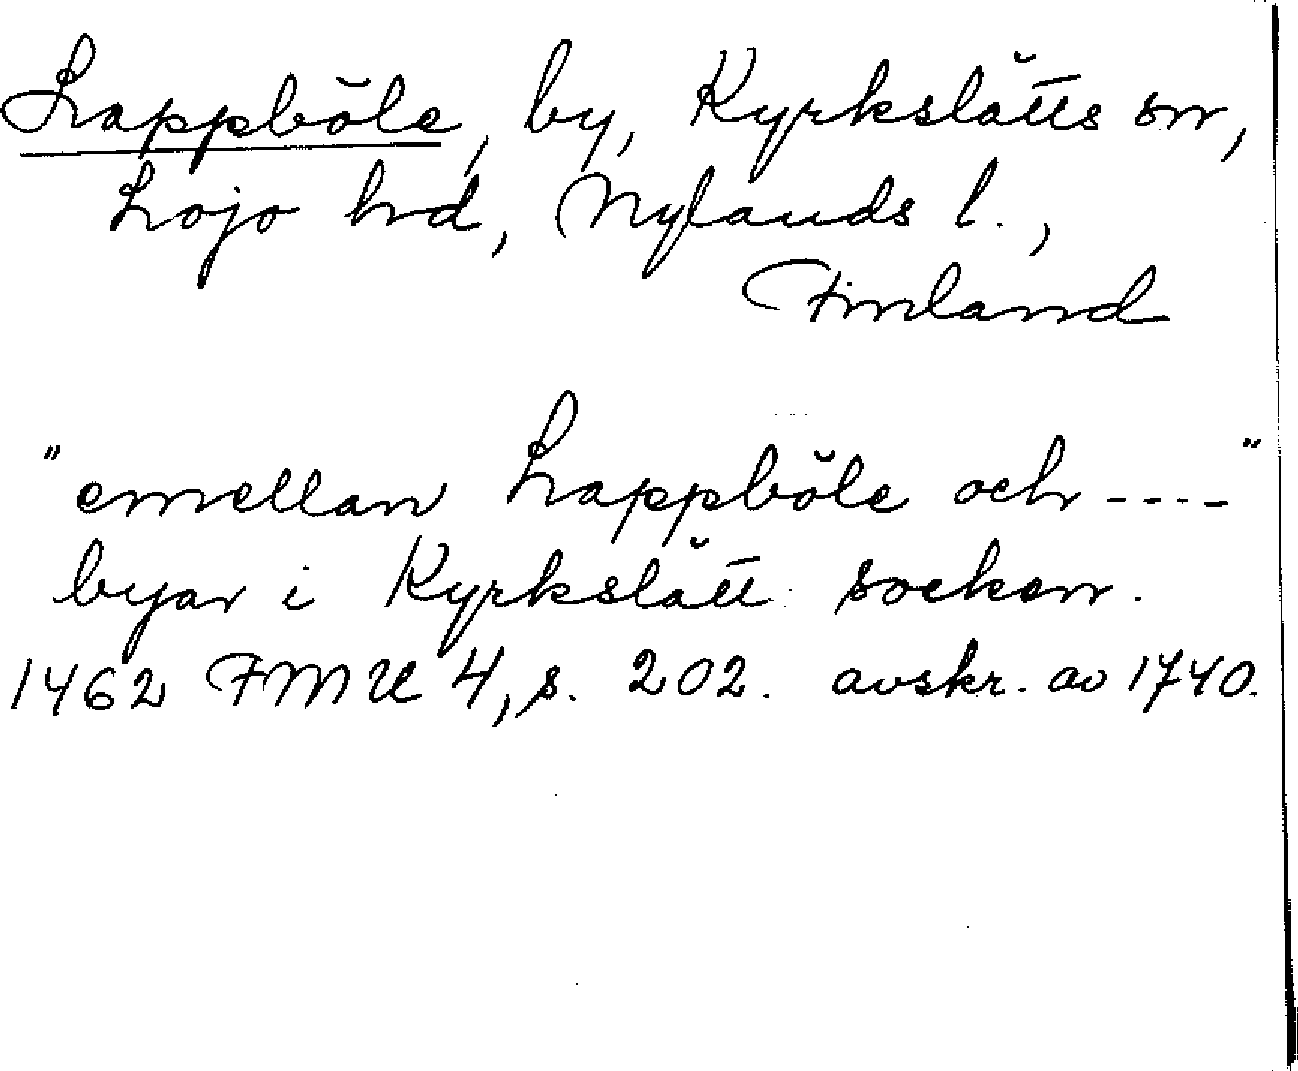 Lappböle, by, Kyrkslätts sn,
Lojo hd, Nylands l.,
Finland
"emellan Lappböle och ----"
byar i Kyrkslätt socken.
1462 FMU 4, s. 202. avskr. av 1740.